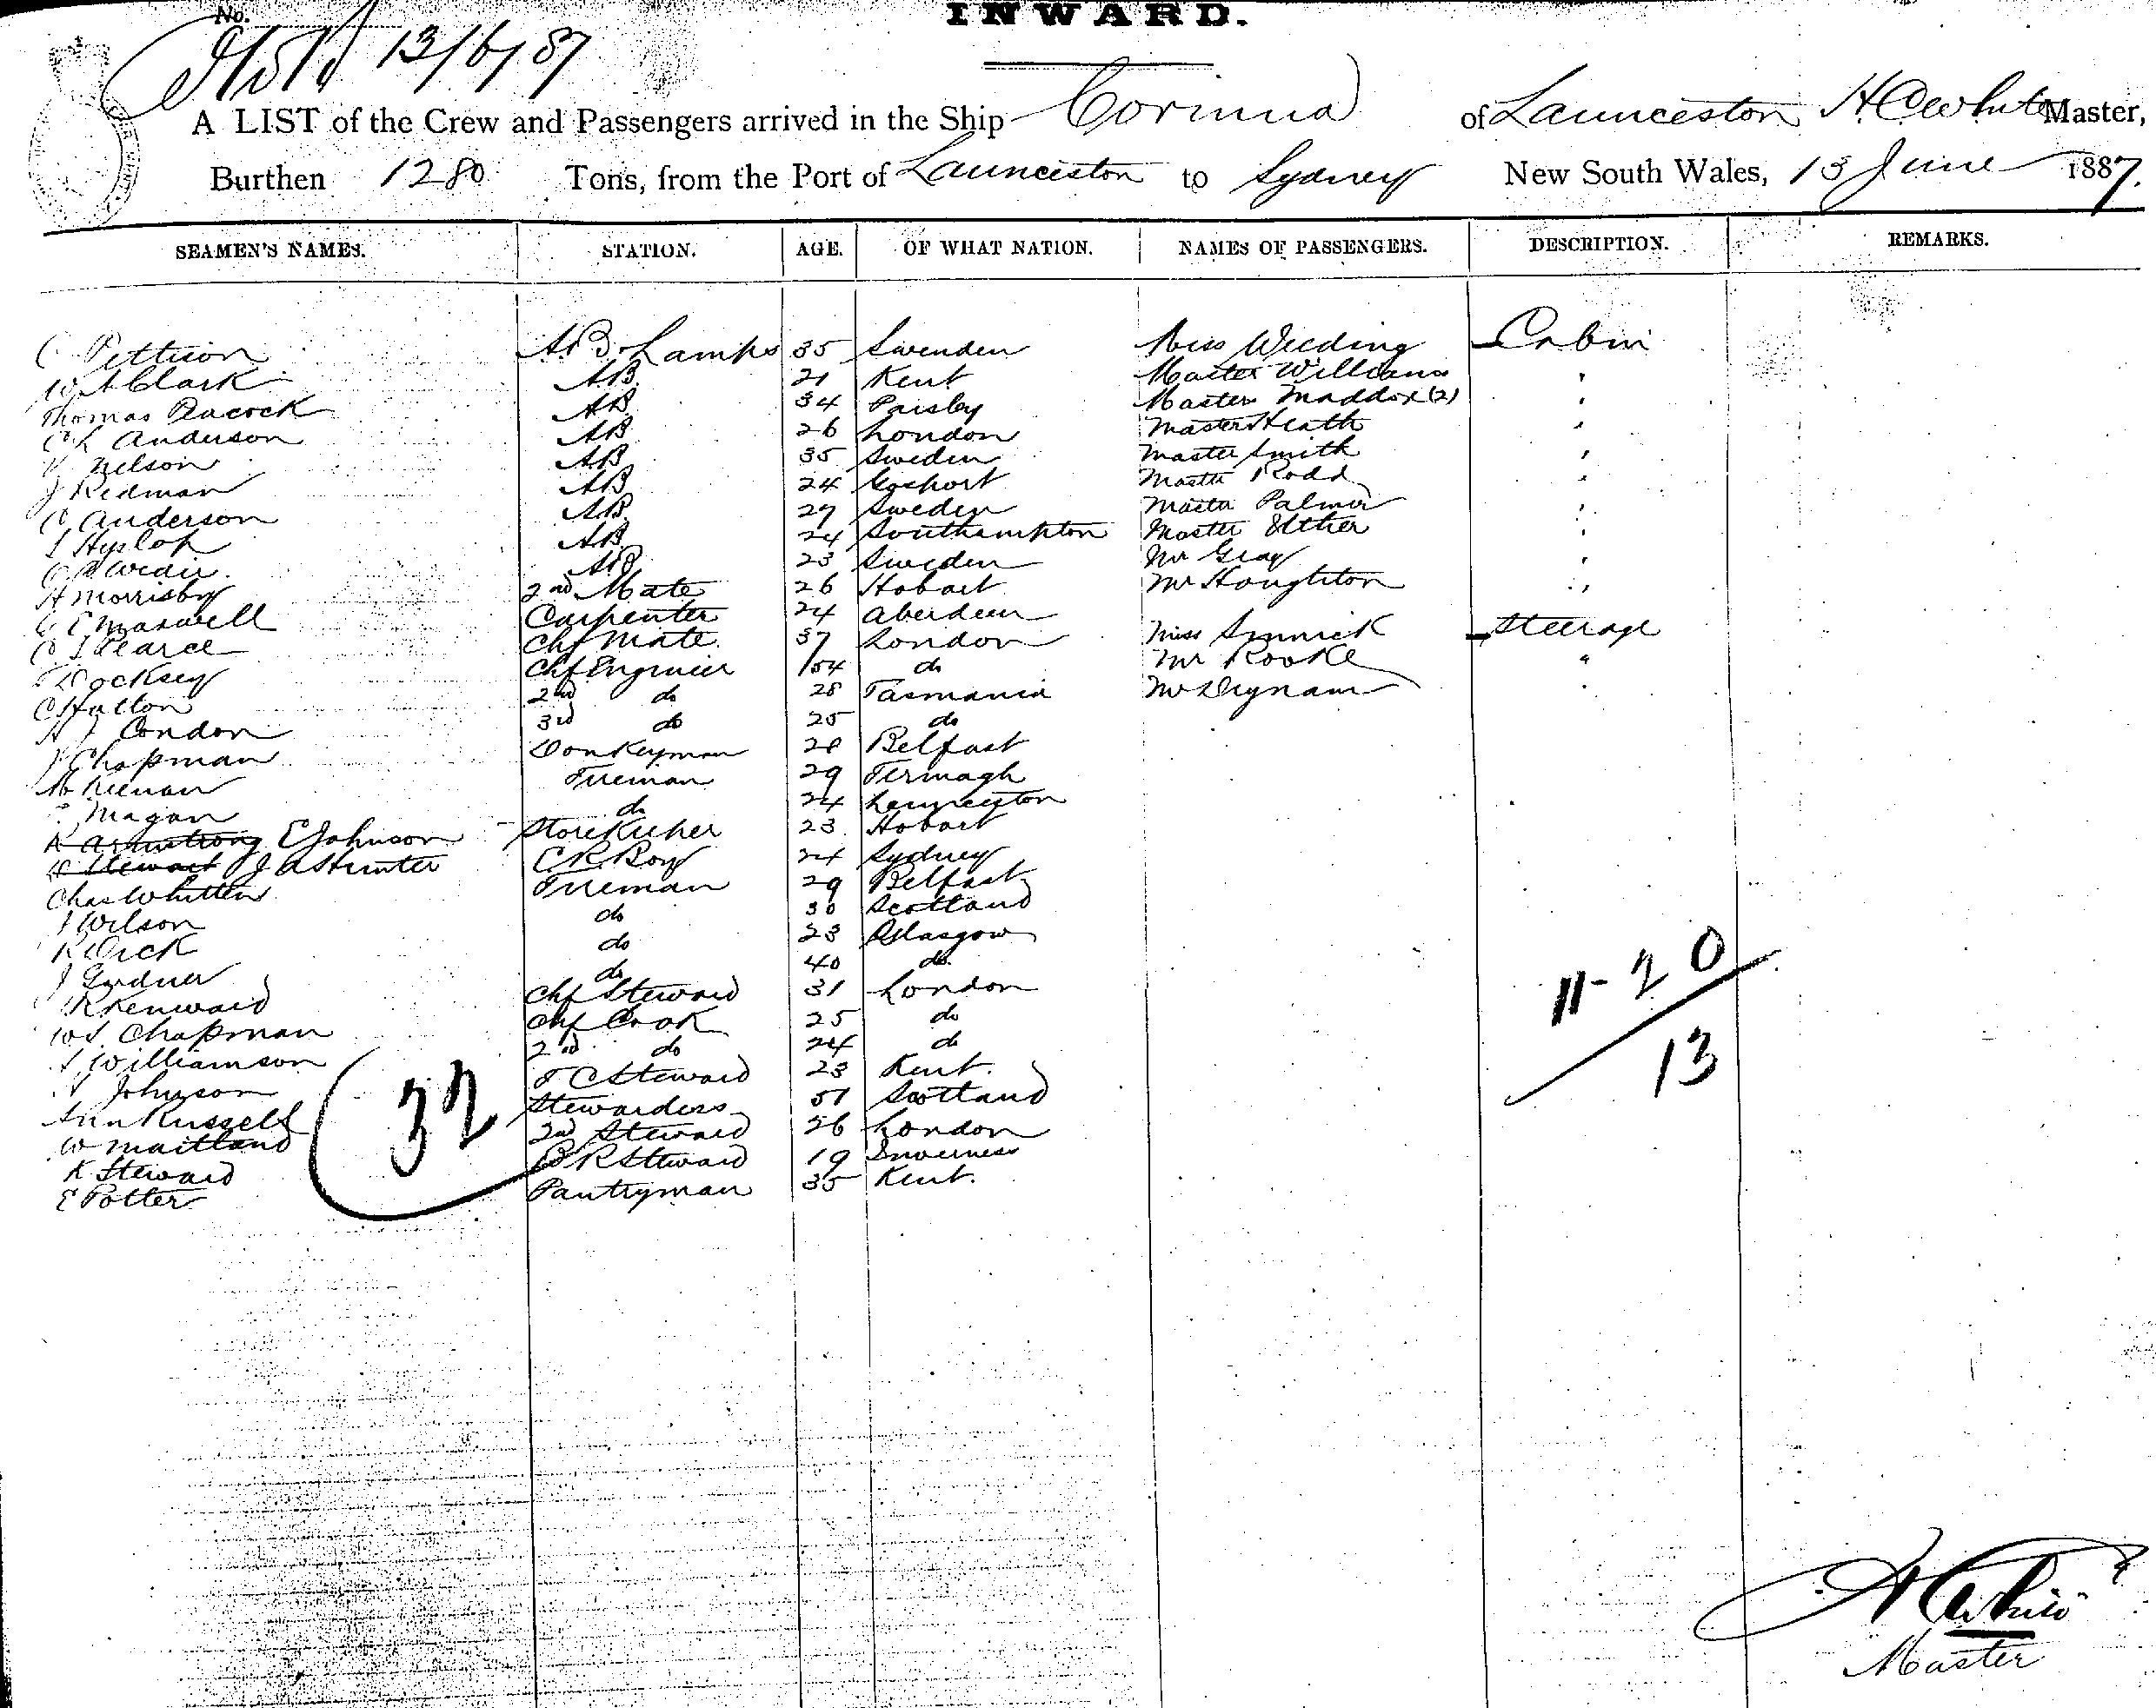 INWARD.
No.
13/6/87
A LIST of the Crew and Passengers arrived in the Ship Corinna of Launceston H C White Master,
Burthen 1280 Tons, from the Port of Launceston to Sydney New South Wales, 13 June 1887.
SEAMEN'S NAMES. STATION. AGE. OF WHAT NATION. NAMES OF PASSENGERS. DESCRIPTION. REMARKS.
C Pettison AB Lamps 35 Swenden Miss Weeding Cabin
W A Clark AB 21 Kent Master Williams "
Thomas Peacock AB 34 Paisley Master Maddox (2) "
Anderson AB 26 London Master Heath "
Nelson AB 35 Sweden Master Smith "
J Redman AB 24 Gosport Master Rodd "
C Anderson AB 27 Sweden Master Palmer "
Hyslop AB 24 Southampton Master "
AB 23 Sweden Mr Gray "
H Morrisby 2nd Mate 26 Hobart Mr Houghton "
Maxwell Carpenter 24 Aberdeen
Pearce Chf Mate 37 London Miss Steerage
Chf Engineer 54 do Mr Rooke "
C Fulton 2nd do 28 Tasmania Mr Dignam "
H J Condon 3rd do 25 do
J Chapman Donkeyman 28 Belfast
Keenan Fireman 29 Fermagh
Magan do 24 Launceston
R Armstrong E Johnson Storekeeper 23 Hobart
Stewart J A Hunter C R Boy 24 Sydney
Chas Whitten Fireman 29 Belfast
J Wilson do 30 Scotland
R Dick do 23 Glasgow
J Gardner do 40 do
R Kenward Chf Steward 31 London
W J Chapman Chf Cook 25 do
Williamson 2nd do 24 do
Johnson F C Steward 23 Kent
Ann Russell Stewardess 51 Scotland
W Maitland 2nd Steward 26 London
K Steward B R Steward 19 Inverness
E Potter Pantryman 35 Kent.
32
11-20
13
H C White
Master